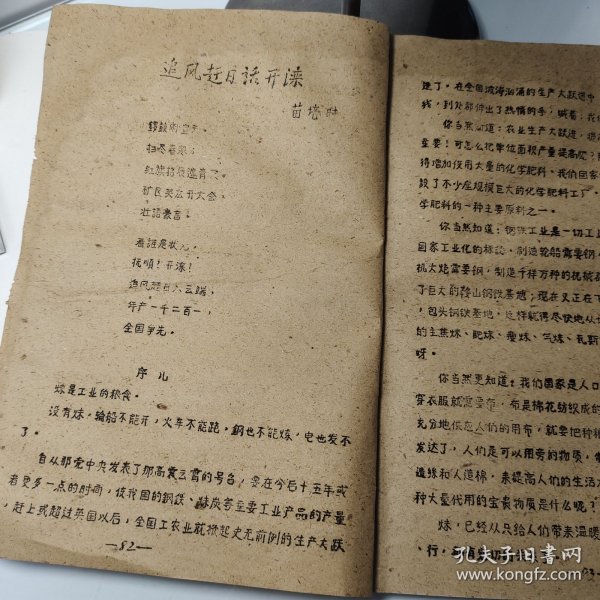 追风赶日话开滦
苗培时
锣鼓响
扫尽暮愁；
红旗招展遮青天。
矿区英雄开大会，
壮语豪言。
看谁是状元，
抚顺！开滦！
追风赶日入云端，
年产一千二百一，
全国争先。
序儿
煤是工业的粮食。
没有煤，轮船不能开，火车不能跑，钢也不能炼，电也发不
了。
自从那党中央发表了那高耸云霄的号召，要在今后十五年或
者更多一点的时间，使我国的钢铁、煤炭等主要工业产品的产量
，赶上或超过英国以后，全国工农业就掀起史无前例的生产大跃
—82—
进了。在全国波涛汹涌的生产大跃进中
线，到处都伸出了热情的手，喊着：我
你当然知道：农业生产大跃进，
重要！可怎么把单位面积产量提高呢？
得增加使用大量的化学肥料。我们国家
设了不少座规模巨大的化学肥料工厂。
学肥料的一种主要原料之一。
你当然知道：钢铁工业是一切工
国家工业化的标志，制造轮船需要钢
抗大炮需要钢，制造千样万种的机械
了巨大的鞍山钢铁基地；现在又正在
，包头钢铁基地，这样就得尽快地从
的主焦煤、肥煤、瘦煤、气煤、瓦斯
呀。
你当然更知道：我们国家是人口
穿衣服就需要布，布是棉花纺织成的
充分地供应人们的用布，就要把种棉
发达了，人们是可以用旁的物质，制
造绦和人造棉，来提高人们的生活
种大量代用的宝贵物质是什么呢？
煤，已经从只给人们带来温暖
、行，
孔夫子旧书网
www.kongfz.com